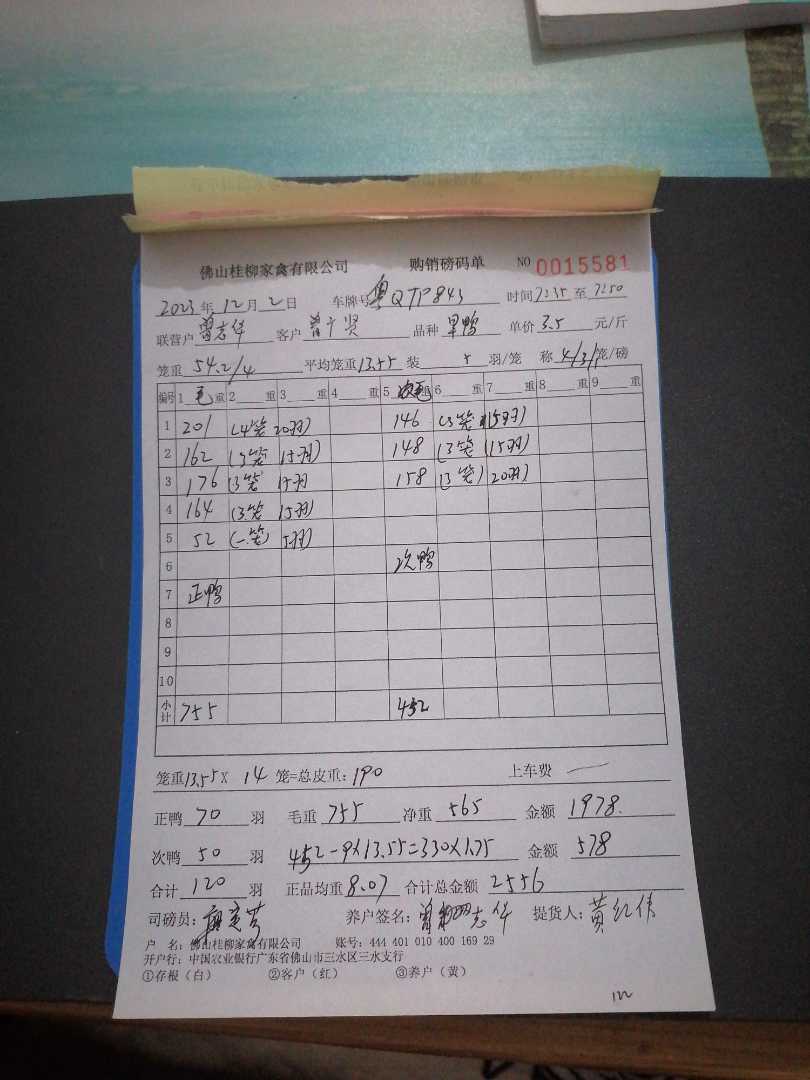 佛山桂柳家禽有限公司 购销磅码单 NO 0015581
2023年12月2日 车牌号 粤QTP843 时间 7:35 至 7:50
联营户 曾志华 客户 曾广贤 品种 单价 3.5 元/斤
笼重 54.2/4 平均笼重 13.55 装 5 羽/笼 称 4/3/1 笼/磅
编号 1 毛 重 2 重 3 重 4 重 5 次毛 重 6 重 7 重 8 重 9 重
1 201 (4笼 20羽) 146 (3笼 15羽)
2 162 (3笼 15羽) 148 (3笼 15羽)
3 176 (3笼 15羽 158 (3笼) 20羽)
4 164 (3笼 15羽)
5 52 (一笼) 5羽)
6 次鸭
7 正鸭
8
9
10
小计 755 452
笼重 13.55 X 14 笼=总皮重: 190 上车费 —
正鸭 70 羽 毛重 755 净重 565 金额 1978.
次鸭 50 羽 452-9×13.55=330×1.75 金额 578
合计 120 羽 正品均重 8.07 合计总金额 2556
司磅员: 养户签名: 曾 志华 提货人: 黄红伟
户 名: 佛山桂柳家禽有限公司 账号: 444 401 010 400 169 29
开户行: 中国农业银行广东省佛山市三水区三水支行
①存根(白) ②客户(红) ③养户(黄)